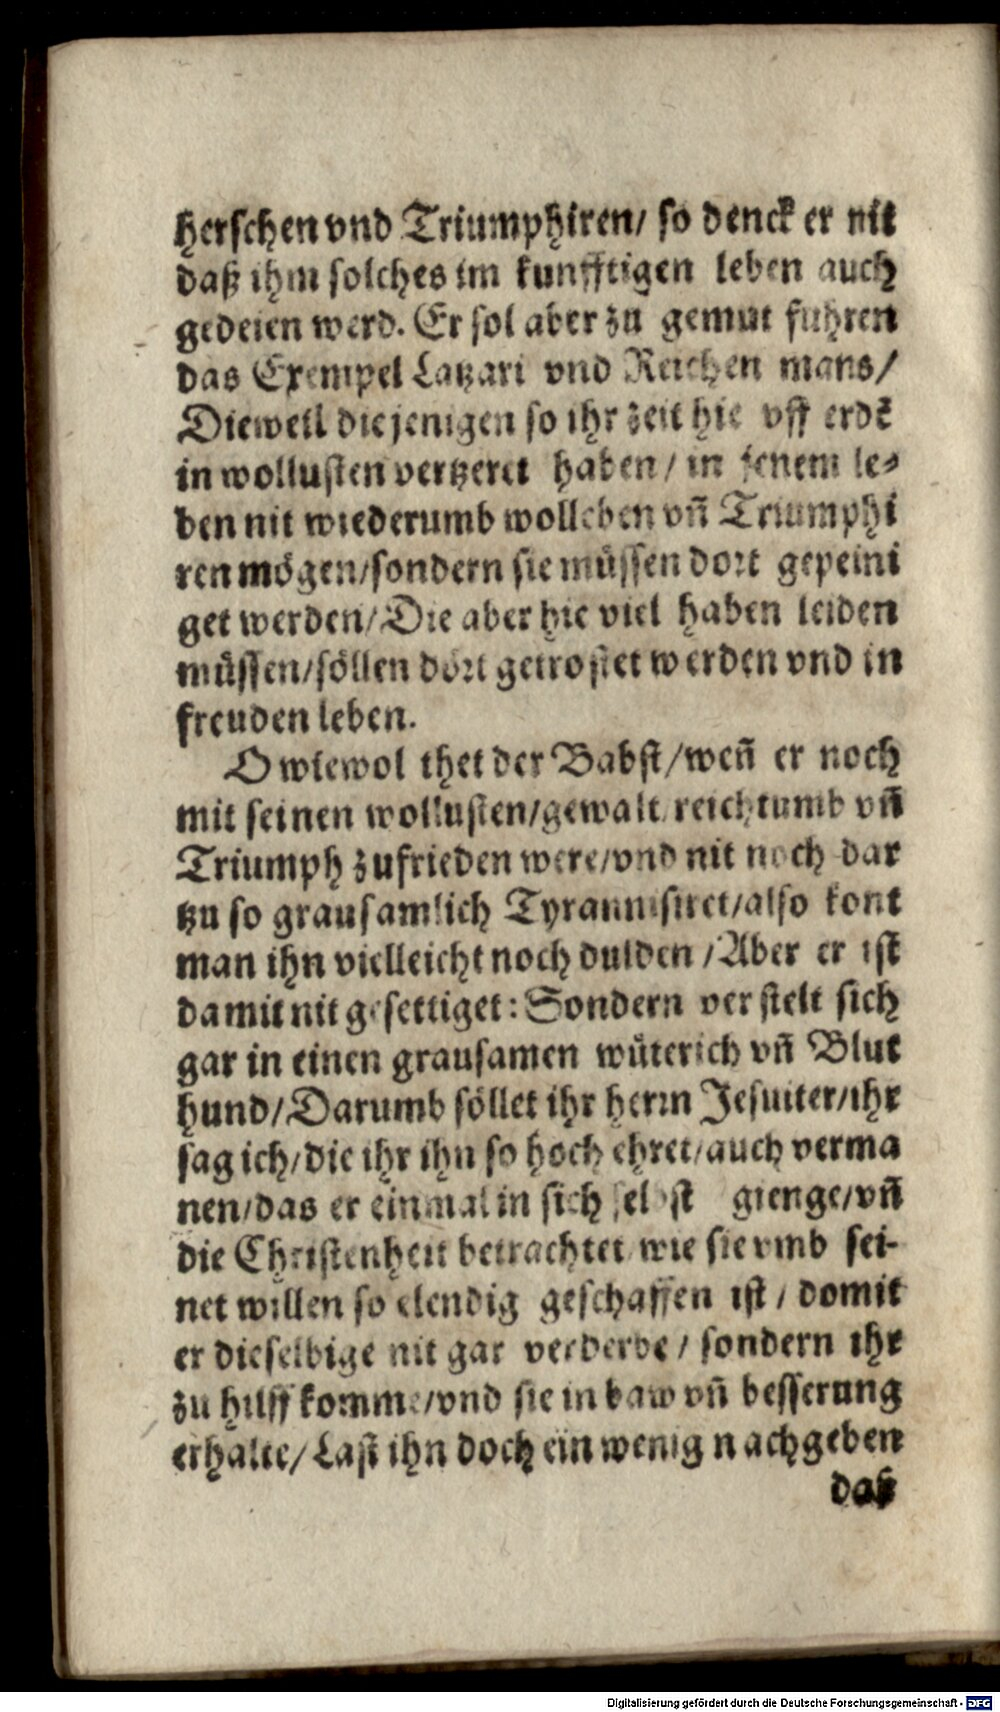 herschen vnd Triumphiren/ so denck er nit
daß ihm solches im kunfftigen leben auch
gedeien werd. Er sol aber zu gemut fuhren
das Exempel Latzari vnd Reichen mans/
Dieweil diejenigen so ihr zeit hie vff erdē
in wollusten vertzeret haben/ in jenem le-
ben nit wiederumb wolleben vñ Triumphi
ren mögen/sondern sie müssen dort gepeini
get werden/Die aber hie viel haben leiden
müssen/söllen dort getrostet werden vnd in
freuden leben.
O wiewol thet der Babst/weñ er noch
mit seinen wollusten/gewalt/reichtumb vñ
Triumph zufrieden were/vnd nit noch dar
tzu so grausamlich Tyrannisiret/also kont
man ihn vielleicht noch dulden /Aber er ist
damit nit gesettiget: Sondern verstelt sich
gar in einen grausamen wüterich vñ Blut
hund/Darumb söllet ihr herrn Jesuiter/ihr
sag ich/die ihr ihn so hoch ehret/auch verma
nen/das er einmal in sich selbst gienge/vñ
die Christenheit betrachtet wie sie vmb sei-
net willen so elendig geschaffen ist / domit
er dieselbige nit gar verderbe / sondern ihr
zu hilff komme/vnd sie in baw vñ besserung
erhalte/ Last ihn doch ein wenig nachgeben
daß
Digitalisierung gefördert durch die Deutsche Forschungsgemeinschaft - DFG